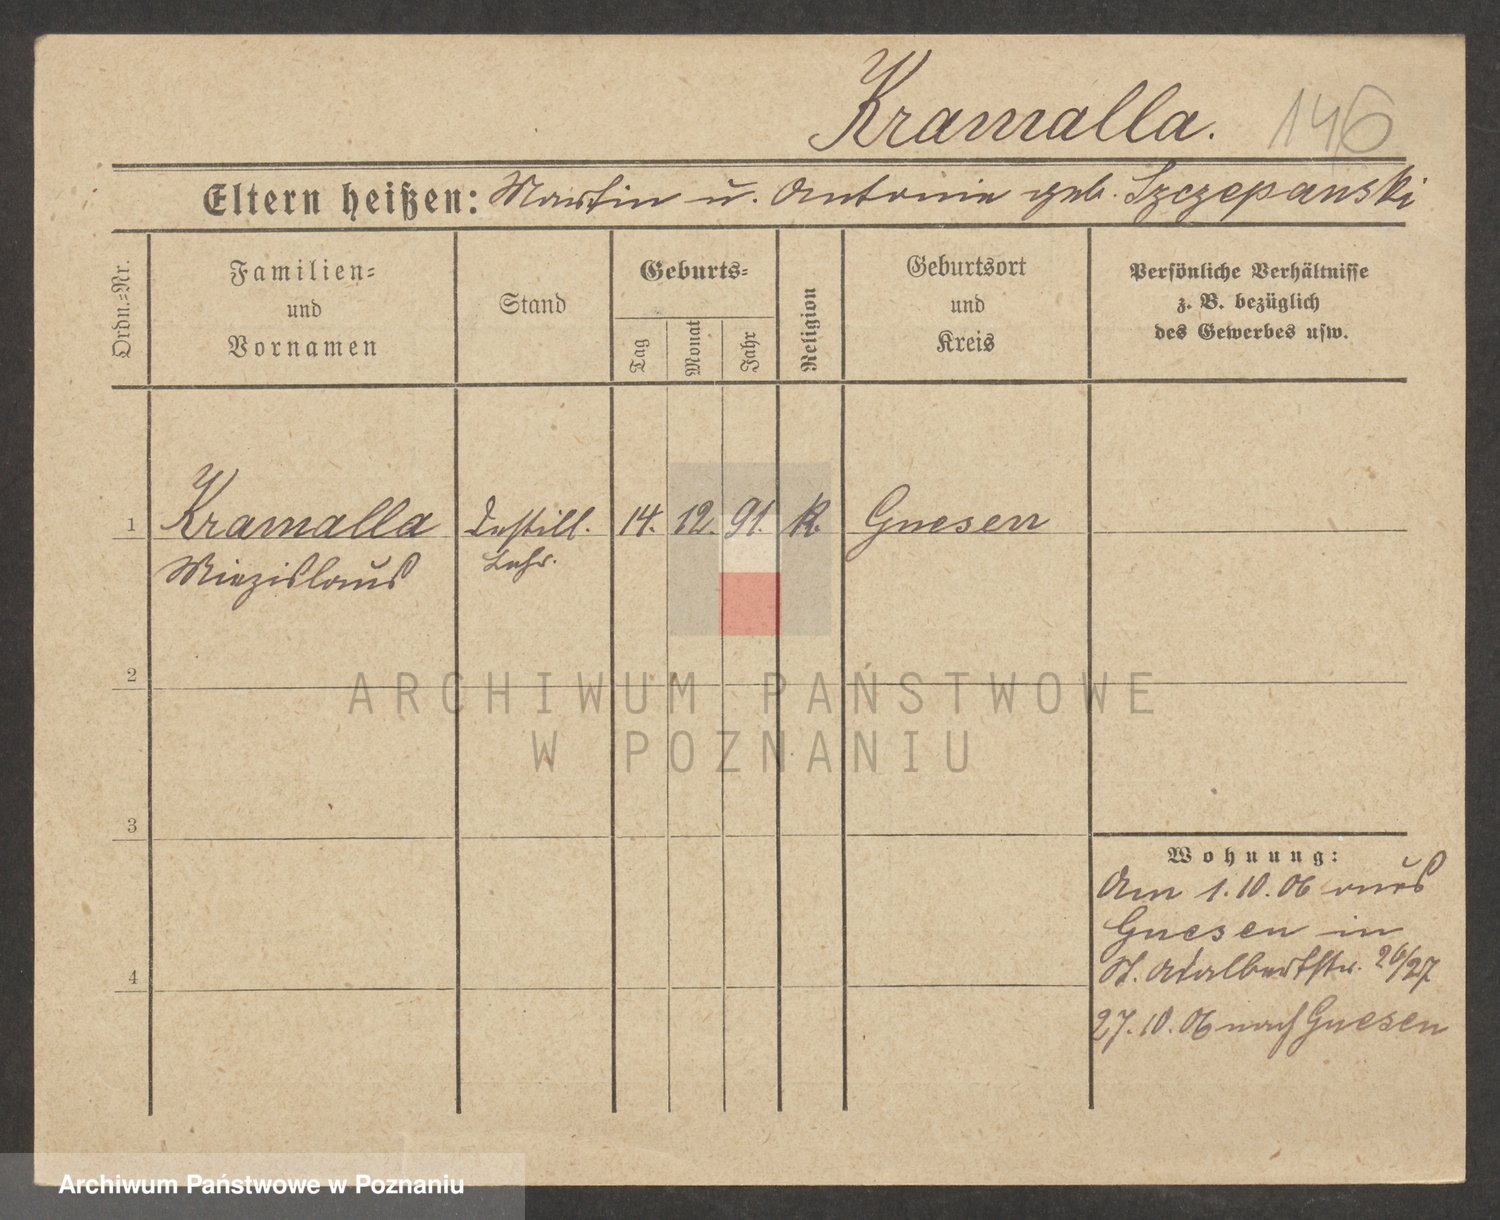 Kramalla.
146
Eltern heißen: Martin u. Antonie geb. Szczepanski
Ordn.-Nr.
Familien-
und
Vornamen
Stand
Geburts-
Tag
Monat
Jahr
Religion
Geburtsort
und
Kreis
Persönliche Verhältnisse
z. B. bezüglich
des Gewerbes usw.
1 Kramalla Destill. 14. 12. 91. K. Gnesen
Miezislaus Lehr.
2
ARCHIWUM PAŃSTWOWE
W POZNANIU
3
Wohnung:
Am 1.10.06 aus
Gnesen in
St. Adalbertstr. 26/27
4
27.10.06 nach Gnesen
Archiwum Państwowe w Poznaniu